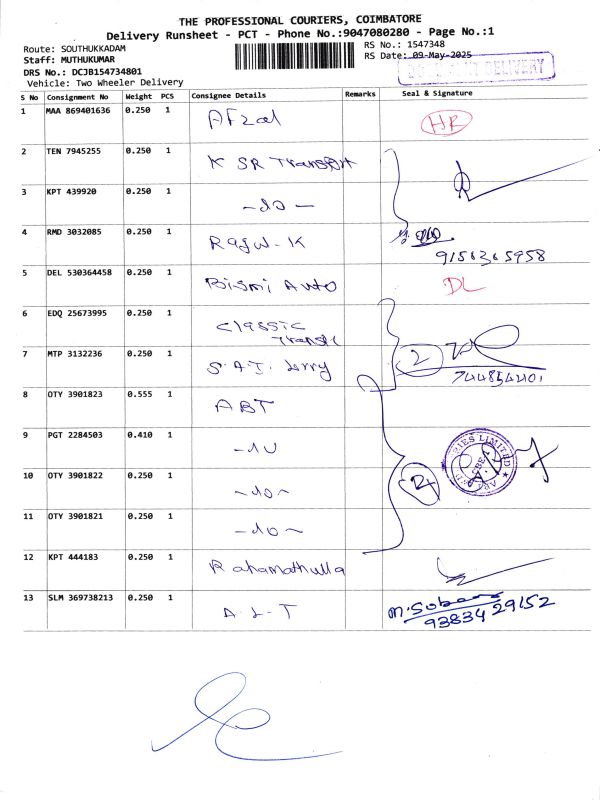 THE PROFESSIONAL COURIERS, COIMBATORE
Delivery Runsheet - PCT - Phone No.:9047080280 - Page No.:1
Route: SOUTHUKKADAM
RS No.: 1547348
Staff: MUTHUKUMAR
RS Date: 09-May-2025
DRS No.: DCJB154734801
DELIVERY
Vehicle: Two Wheeler Delivery
S No Consignment No Weight PCS Consignee Details Remarks Seal & Signature
1 MAA 869401636 0.250 1 Afzal HR
2 TEN 7945255 0.250 1 K SR Transport
3 KPT 439920 0.250 1 -do-
4 RMD 3032085 0.250 1 Raju-K
9156365958
5 DEL 530364458 0.250 1 Bismi Auto DL
6 EDQ 25673995 0.250 1 Classic
7 MTP 3132236 0.250 1 S.A.T. Lorry 2
7448544401
8 OTY 3901823 0.555 1 ABT
9 PGT 2284503 0.410 1 -do
LIMITED
10 OTY 3901822 0.250 1 -do-
11 OTY 3901821 0.250 1 -do-
12 KPT 444183 0.250 1 Rahamathulla
13 SLM 369738213 0.250 1 A-L-T
9383429152